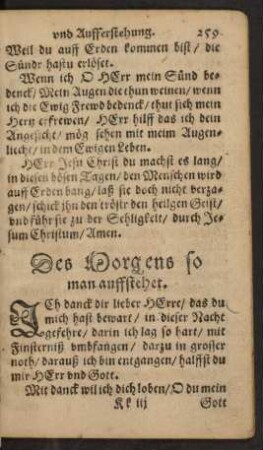 vnd Aufferstehung. 259
Weil du auff Erden kommen bist / die
Sünde hastu erlöset.
Wenn ich O HErr mein Sünd be-
denck / Mein Augen die thun weinen / wenn
ich die Ewig Frewd bedenck / thut sich mein
Hertz erfrewen / HErr hilff das ich dein
Angesicht / mög sehen mit meim Augen-
liecht / in dem Ewigen Leben.
HErr Jesu Christ du machst es lang /
in diesen bösen Tagen / den Menschen wird
auff Erden bang / laß sie doch nicht verza-
gen / schick jhn den tröster den heilgen Geist /
vnd führ sie zu der Sehligkeit / durch Je-
sum Christum / Amen.
Des Morgens so
man auffstehet.
JCh danck dir lieber HErre / das du
mich hast bewart / in dieser Nacht
gefehre / darin ich lag so hart / mit
Finsterniß vmbfangen / darzu in grosser
noth / darauß ich bin entgangen / halffst du
mir HErr vnd Gott.
Mit danck wil ich dich loben / O du mein
Kk iij Gott